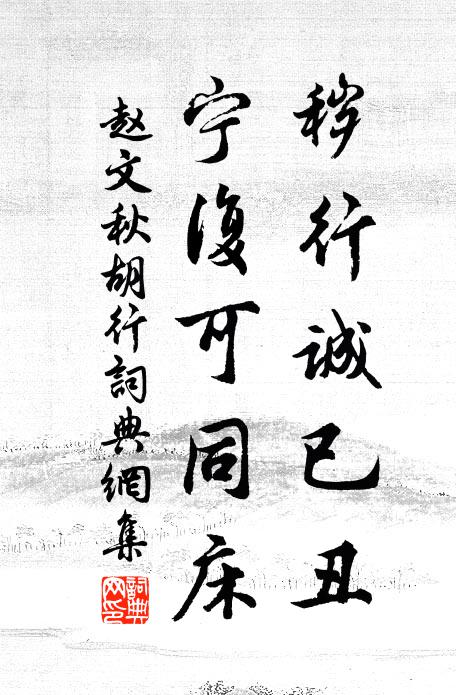 秽行诚已丑
宁复可同床
赵文秋胡行詞典網集
詞典网印